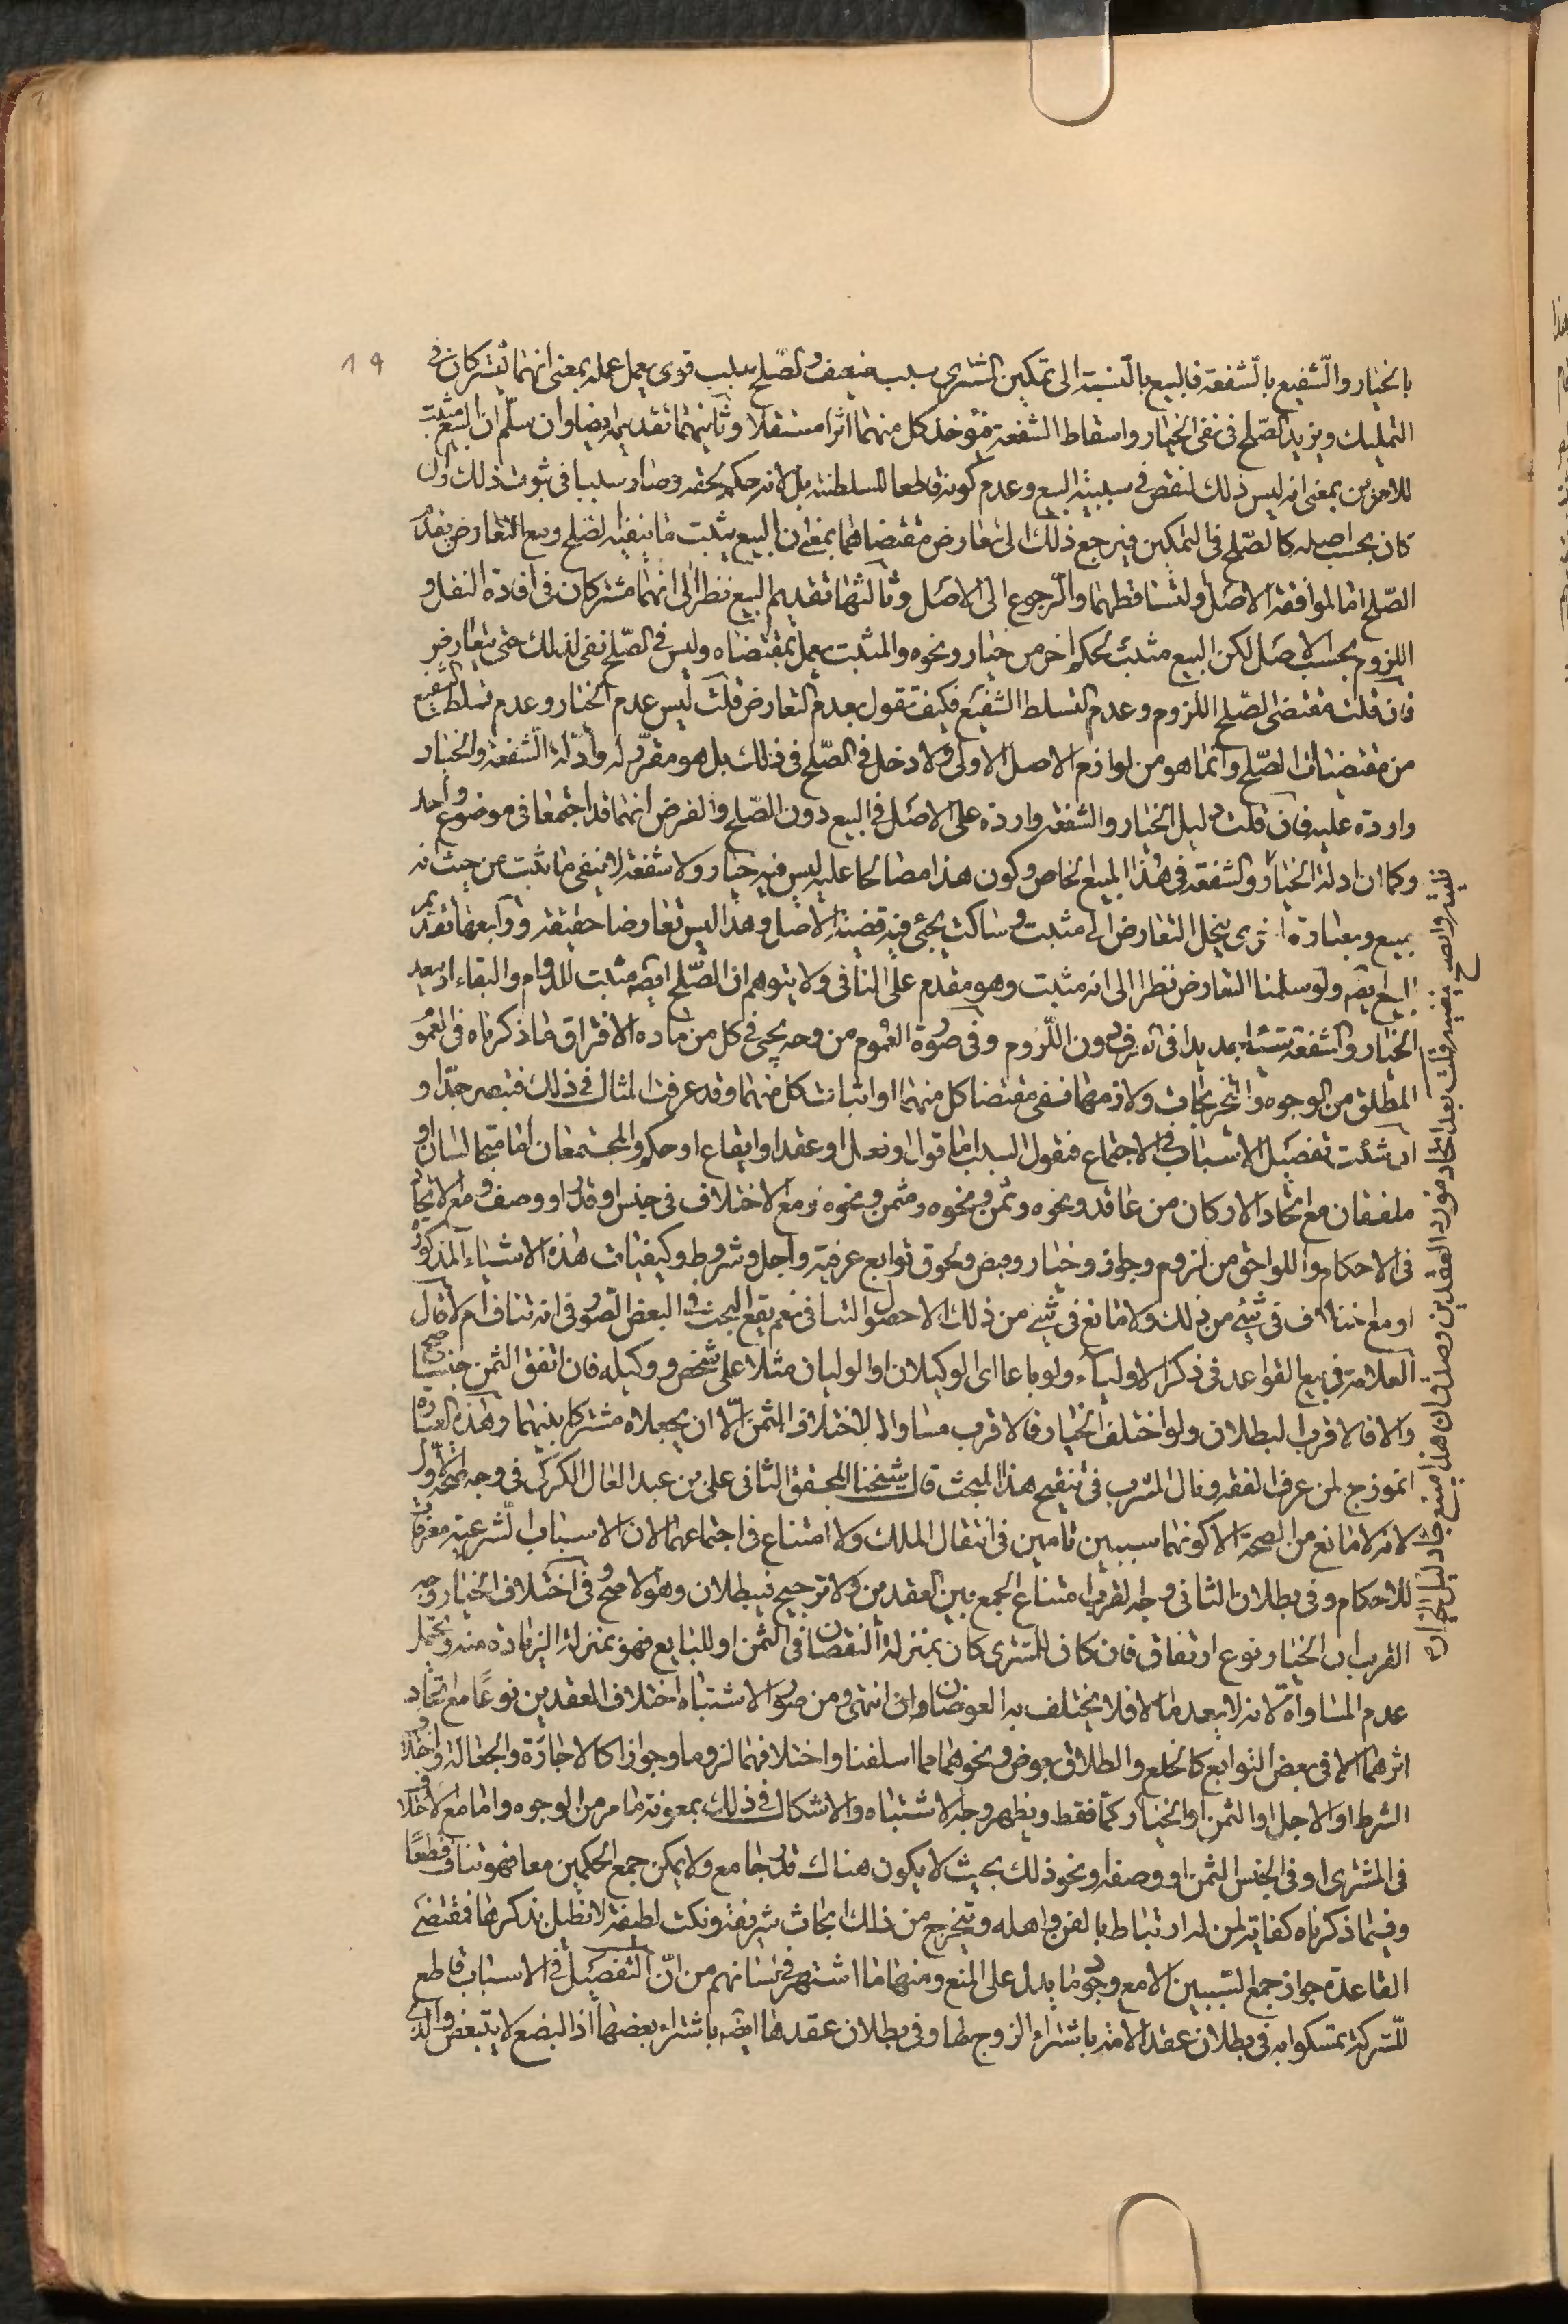 ١٩
بالخيار والشفيع بالشفعة فالبيع بالنسبة الى تمكين المشتري سبب ضعيف والصلح سبب قوى يعمل عمله بمعنى انهما يشتركان فى
التمليك ويزيد الصلح فى نفى الخيار واسقاط الشفعة فيؤخذ كل منهما اثرا مستقلا وثانيهما تقديمه ايضا وان سلم ان البيع مثبت
للامرين بمعنى انه ليس ذلك لنقص فى سببية البيع وعدم كونه قاطعا للسلطنة بل لانه حكم لحقه وصار سببا فى ثبوت ذلك وان
كان بحسب اصله كالصلح فى التمكين فيرجع ذلك الى تعارض مقتضاهما بمعنى ان البيع يثبت ما ينفيه الصلح ومع التعارض يقدم
الصلح اما لموافقة الاصل او لتساقطهما والرجوع الى الاصل وثالثها تقديم البيع نظرا الى انهما مشتركان فى افادة النقل و
اللزوم بحسب الاصل لكن البيع مثبت لحكم اخر من خيار ونحوه والمثبت يعمل بمقتضاه وليس فى الصلح نفى لذلك حتى يتعارض
فان قلت مقتضى الصلح اللزوم وعدم التسلط الشفيع فكيف تقول بعدم التعارض قلت ليس عدم الخيار وعدم تسلط الشفيع
من مقتضيات الصلح وانما هو من لوازم الاصل الاولى ولا دخل فى الصلح فى ذلك بل هو مقرر له وادلة الشفعة والخيار
واردة عليه فان قلت دليل الخيار والشفعة واردة على الاصل فى البيع دون الصلح والفرض انهما قد اجتمعا فى موضوع واحد
وكما ان ادلة الخيار والشفعة فى هذا المبيع الخاص وكون هذا مصالحا عليه ليس فيه خيار ولا شفعة لا ينفى ما ثبت من حيث انه
مبيع وبعبارة اخرى ينحل التعارض الى مثبت وساكت يجئى فيه قضية الاصل وهذا ليس تعارضا حقيقة ورابعها تقديم
البيع ايضه ولو سلمنا التعارض نظرا الى انه مثبت وهو مقدم على النافى ولا يتوهم ان الصلح ايضه مثبت للدوام والبقاء اذ بعد
الخيار والشفعة دون اللزوم وفى صورة العموم من وجه يجئ فى كل من مادة الافتراق ما ذكرناه فى العموم
المطلق من الوجوه والتخريجات ولازمهما نفى مقتضا كل منهما او اثبات كل منهما وقد عرفت المثال فى ذلك فتبصر جدا و
ان شئت تفصيل الاسباب فى الاجتماع فنقول السبب اما قول او فعل او عقد او ايقاع او حكم والمجتمعان اما متجانسان او
ملفقان مع اتحاد الاركان من عاقد ونحوه وثمن ونحوه ومثمن ونحوه ومع الاختلاف فى جنس او قدر او وصف ومع الاتحاد
فى الاحكام واللواحق من لزوم وجواز وخيار وقبض ولحوق توابع عرفية واجل وشروط وكيفيات هذه الاشياء المذكورة
او مع اختلاف فى شئ من ذلك ولا مانع فى شئ من ذلك الا حصول التنافى نعم يقع البحث فى البعض الصور فى انه تناف ام لا قال
العلامة فى بيع القواعد فى ذكر الاولياء ولو باعا اى الوكيلان او الوليان مثلا على شخص ووكيله فان اتفق الثمن جنسا صح
والا فالاقرب البطلان ولو اختلف الخيار فالاقرب مساواته لاختلاف الثمن الا ان يجعلاه مشتركا بينهما وهذه العبارة
انموذج لمن عرف الفقه ونال المشرب فى تنقيح هذا المبحث قال شيخنا المحقق الثانى على بن عبد العال الكركى فى وجه صحة الاول
لانه لا مانع من الصحة الا كونهما سببين تامين فى انتقال الملك ولا امتناع فى اجتماعهما لان الاسباب الشرعية معرفات
للاحكام وفى بطلان الثانى وجه القرب امتناع الجمع بين العقدين ولا ترجيح فيبطلان وهو الاصح وفى اختلاف الخيار وجه
القرب ان الخيار نوع ارتفاق فان كان للمشترى كان بمنزلة النقصان فى الثمن او للبايع فهو بمنزلة الزيادة منه ويحتمل
عدم المساواة لانه لا يعد مالا فلا يختلف به العوضان انتهى ومن صور الاشتباه اختلاف العقدين نوعًا مع اتحاد
اثرهما الا فى بعض التوابع كالخلع والطلاق بعوض ونحوهما مما اسلفنا واختلافهما لزوما وجوازا كالاجازة والجعالة واختلاف
الشرط او الاجل او الثمن او الخيار كما فقط ويظهر وجه الاشتباه والاشكال فى ذلك بمعونة ما مر من الوجوه واما مع الاختلاف
فى المشترى او فى الجنس الثمن او وصفه ونحو ذلك بحيث لا يكون هناك قدر جامع ولا يمكن جمع الحكمين معا فهو تناف قطعًا
وفيما ذكرناه كفاية لمن له ارتباط بالفن واهله ويتخرج من ذلك ابحاث شريفة ونكت لطيفة لا نطيل بذكرها فمقتضى
القاعدة جواز جمع السببين الا مع وجود ما يدل على المنع ومنها ما اشتهر فى لسانهم من ان التفصيل فى الاسباب قاطع
للشركة تمسكوا به فى بطلان عقد الامة باشتراء الزوج لها وفى بطلان عقدها ايضه باشتراء بعضها اذ البضع لا يتبعض والذى
قلت بعد اتحاد مورد العقدين وصدق ان هذا مبيع جاء دليل الخيار